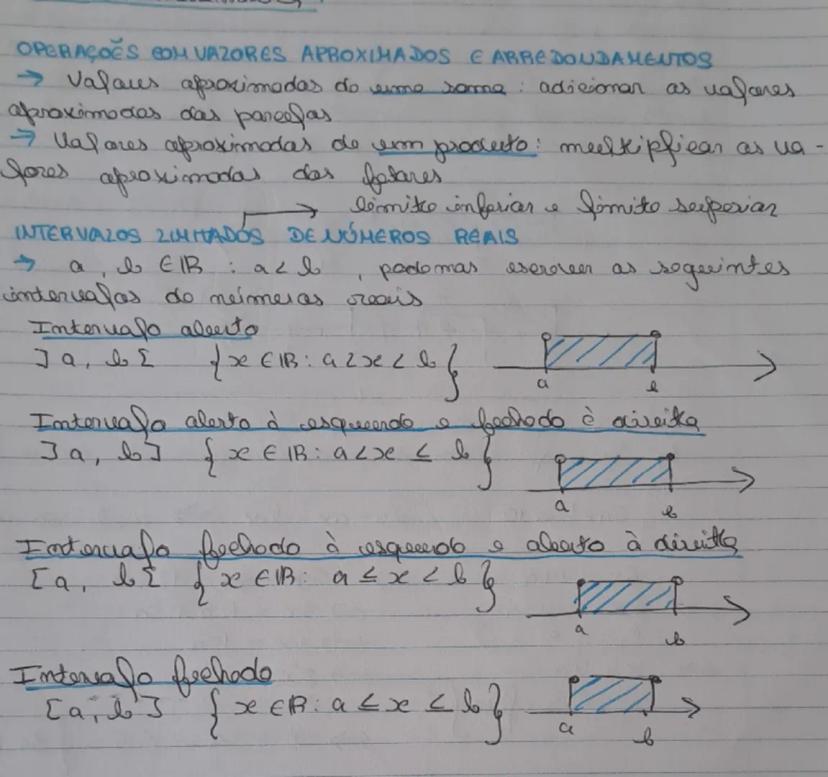 OPERAÇÕES COM VALORES APROXIMADOS E ARREDONDAMENTOS
→ Valores aproximados de uma soma: adicionar os valores
aproximados das parcelas
→ Valores aproximados de um produto: multiplicar os va-
lores aproximados dos fatores
→ limite inferior e limite superior
INTERVALOS LIMITADOS DE NÚMEROS REAIS
→ a, b ∈ IR : a < b, podemos escrever os seguintes
intervalos de números reais
Intervalo aberto
]a, b[ {x ∈ IR: a < x < b} a b
Intervalo aberto à esquerda e fechado à direita
]a, b] {x ∈ IR: a < x ≤ b} a b
Intervalo fechado à esquerda e aberto à direita
[a, b[ {x ∈ IR: a ≤ x < b} a b
Intervalo fechado
[a, b] {x ∈ IR: a ≤ x ≤ b} a b